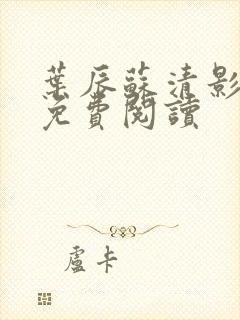 葉辰蘇清影
免費閱讀
盧卡